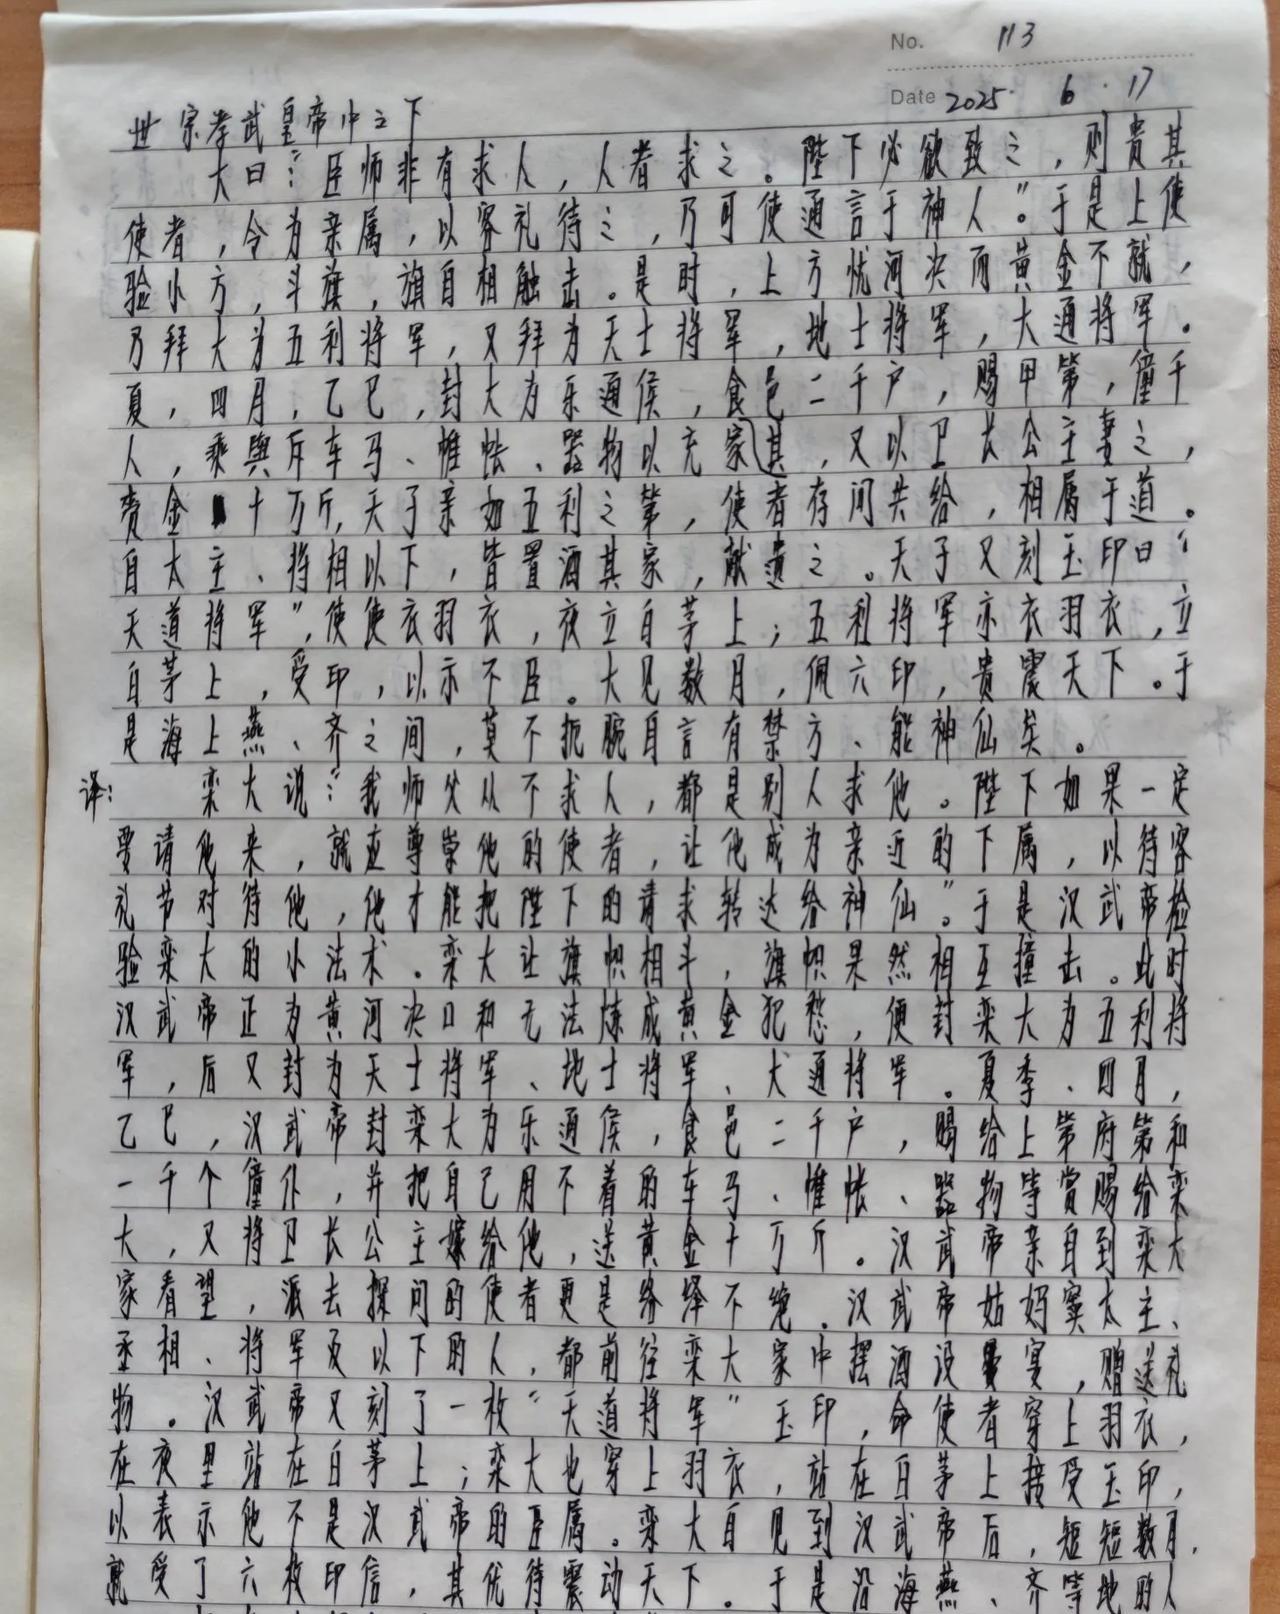 No. 113
Date 2025. 6. 17
世宗孝武皇帝中之下
大曰:“臣师非有求人,人者求之。陛下必欲致之,则贵其
使者,令为亲属,以客礼待之,乃可使通言于神人”。于是上使
验小方,斗旗,旗自相触击。是时,上方忧河决而黄金不就,
乃拜大为五利将军,又拜为天士将军,地士将军,大通将军。
夏,四月,乙巳,封大为乐通侯,食邑二千户,赐甲第,僮千
人,乘舆斥车马、帷帐、器物以充家其,又以卫长公主妻之,
赍金十万斤,天子亲如五利之第,使者存问共给,相属于道。
自太主、将相以下,皆置酒其家,献遗之。天子又刻玉印曰“
天道将军”,使使衣羽衣,夜立白茅上;五利将军亦衣羽衣,立
白茅上,受印,以示不臣。大见数月,佩六印,贵震天下。于
是海上燕、齐之间,莫不扼腕自言有禁方、能神仙矣。
译: 栾大说:“我师父从不求人,都是别人求他。陛下如果一定
要请他来,就应尊崇他的使者,让他成为亲近的下属,以待客
礼节对待他,他才能把陛下的请求转达给神仙”。于是汉武帝检
验栾大的小法术。栾大让旗帜相斗,旗帜果然相互撞击。此时
汉武帝正为黄河决口和无法炼成黄金犯愁,便封栾大为五利将
军,后又封为天士将军、地士将军、大通将军。夏季、四月,
乙巳,汉武帝封栾大为乐通侯,食邑二千户,赐给上第府第和
一千个僮仆,并把自己用不着的车马、帷帐、器物等赏赐给栾
大,又将卫长公主嫁给他,送黄金十万斤。汉武帝亲自到栾大
家看望,派去探问的使者更是络绎不绝。汉武帝姑妈窦太主、
丞相、将军及以下的人,都前往栾大家中摆酒设宴,赠送礼
物。汉武帝又刻了一枚“天道将军”玉印,命使者穿上羽衣,
在夜里站在白茅上;栾大也穿上羽衣,站在白茅上接受玉印,
以表示他不是汉武帝的臣属。栾大自见到汉武帝后,短短数月,
就受了六枚印信,其优待震动天下。于是沿海燕、齐等地的人